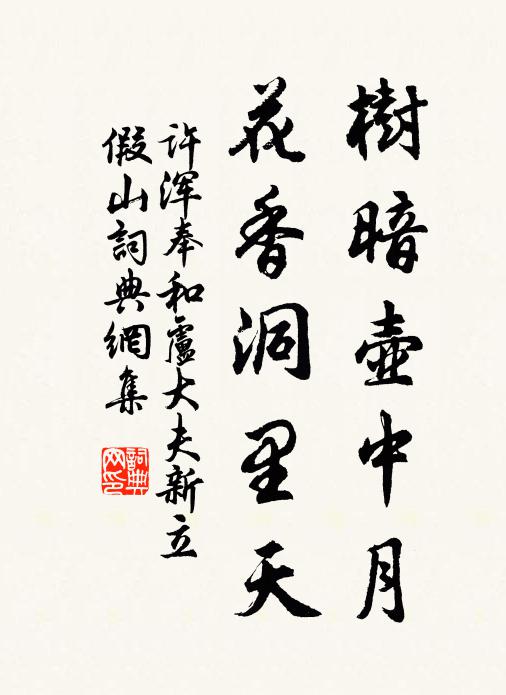 樹暗壺中月
花香洞里天
许浑奉和盧大夫新立
假山詞典網集
詞典
网印